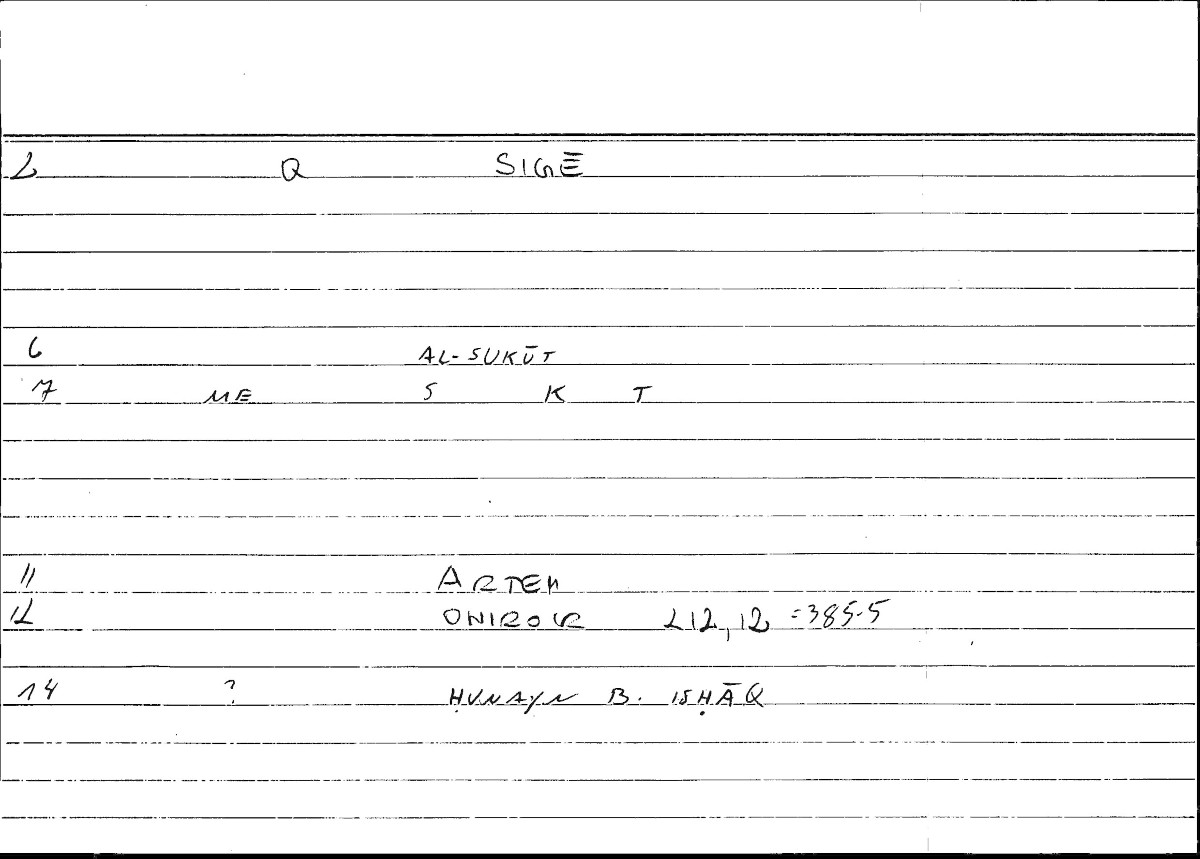 2 Q SIGĒ
6 AL-SUKŪT
7 ME S K T
11 ARTEM
12 ONIROCR 212,12 =385.5
14 ? ḤUNAYN B. ISḤĀQ